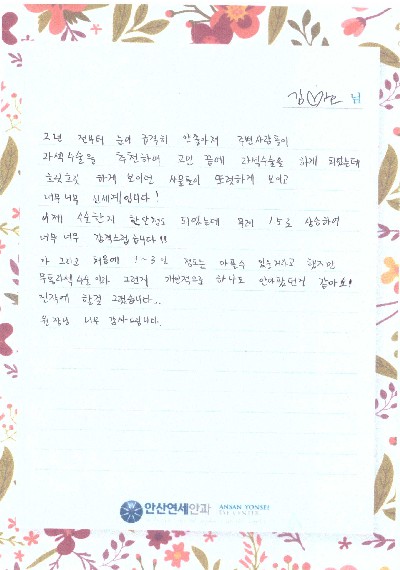 김♡ 님
2년 전부터 눈이 급격히 안좋아져 주변사람들이
라섹수술을 추천하여 고민 끝에 라섹수술을 하게 되었는데
흐릿흐릿 하게 보이던 사물들이 또렷하게 보이고
너무너무 신세계입니다!
이제 수술한지 한달정도 되었는데 무려 1.5로 상승하여
너무 너무 감격스럽습니다!!
아 그리고 처음에 1~3일 정도는 아플수 있을거라고 했지만
무통라섹 수술 이라 그런지 개인적으로 하나도 안아팠던거 같아요!
진작에 할걸 그랬습니다..
원장님 너무 감사드립니다.
안산연세안과 ANSAN YONSEI EYE CENTER